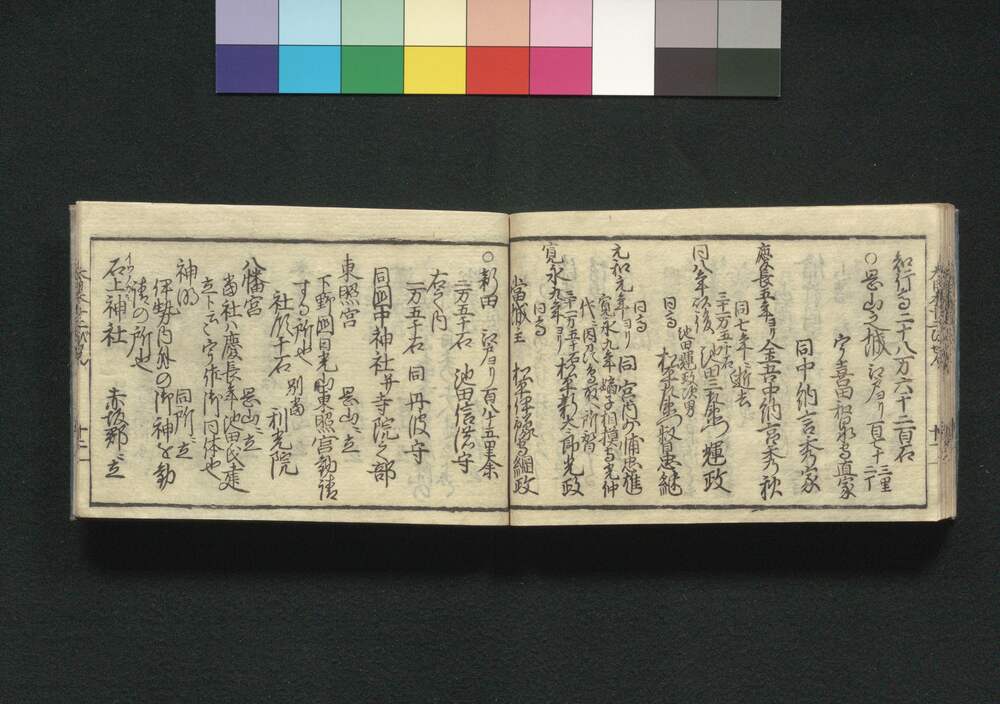 知行高二十八万六千二百石
○岡山之城 江戸ヨリ百七十三里二丁
宇喜田和泉守直家
同中納言秀家
慶長五年ヨリ金吾中納言秀秋
同七年ニ逝去
同八年以後 池田三左衛門輝政
三十一万五千石
池田輝政次男
同高 松平左衛門督忠継
元和元年ヨリ 同宮内少輔忠雄
同高
寛永九年嫡子相模守光仲
代ニ因伯ニ為取所替
寛永九年ヨリ松平新太郎光政
三十一万五千石
同高
當城主 松平伊予守綱政
○新田 江戸ヨリ百八十五里余
二万五千石 池田信濃守
右之内
一万五千石 同丹波守
同国中神社并寺院之部
東照宮 岡山ニ立
下野国日光山東照宮勧請
する所也 別當
社領千石 利光院
八幡宮 岡山ニ立
當社ハ慶長年池田氏建
立ト云々宇佐御同体也
神明 同所ニ立
伊勢内外の御神を勧
請の所也
石上神社 赤坂郡ニ立